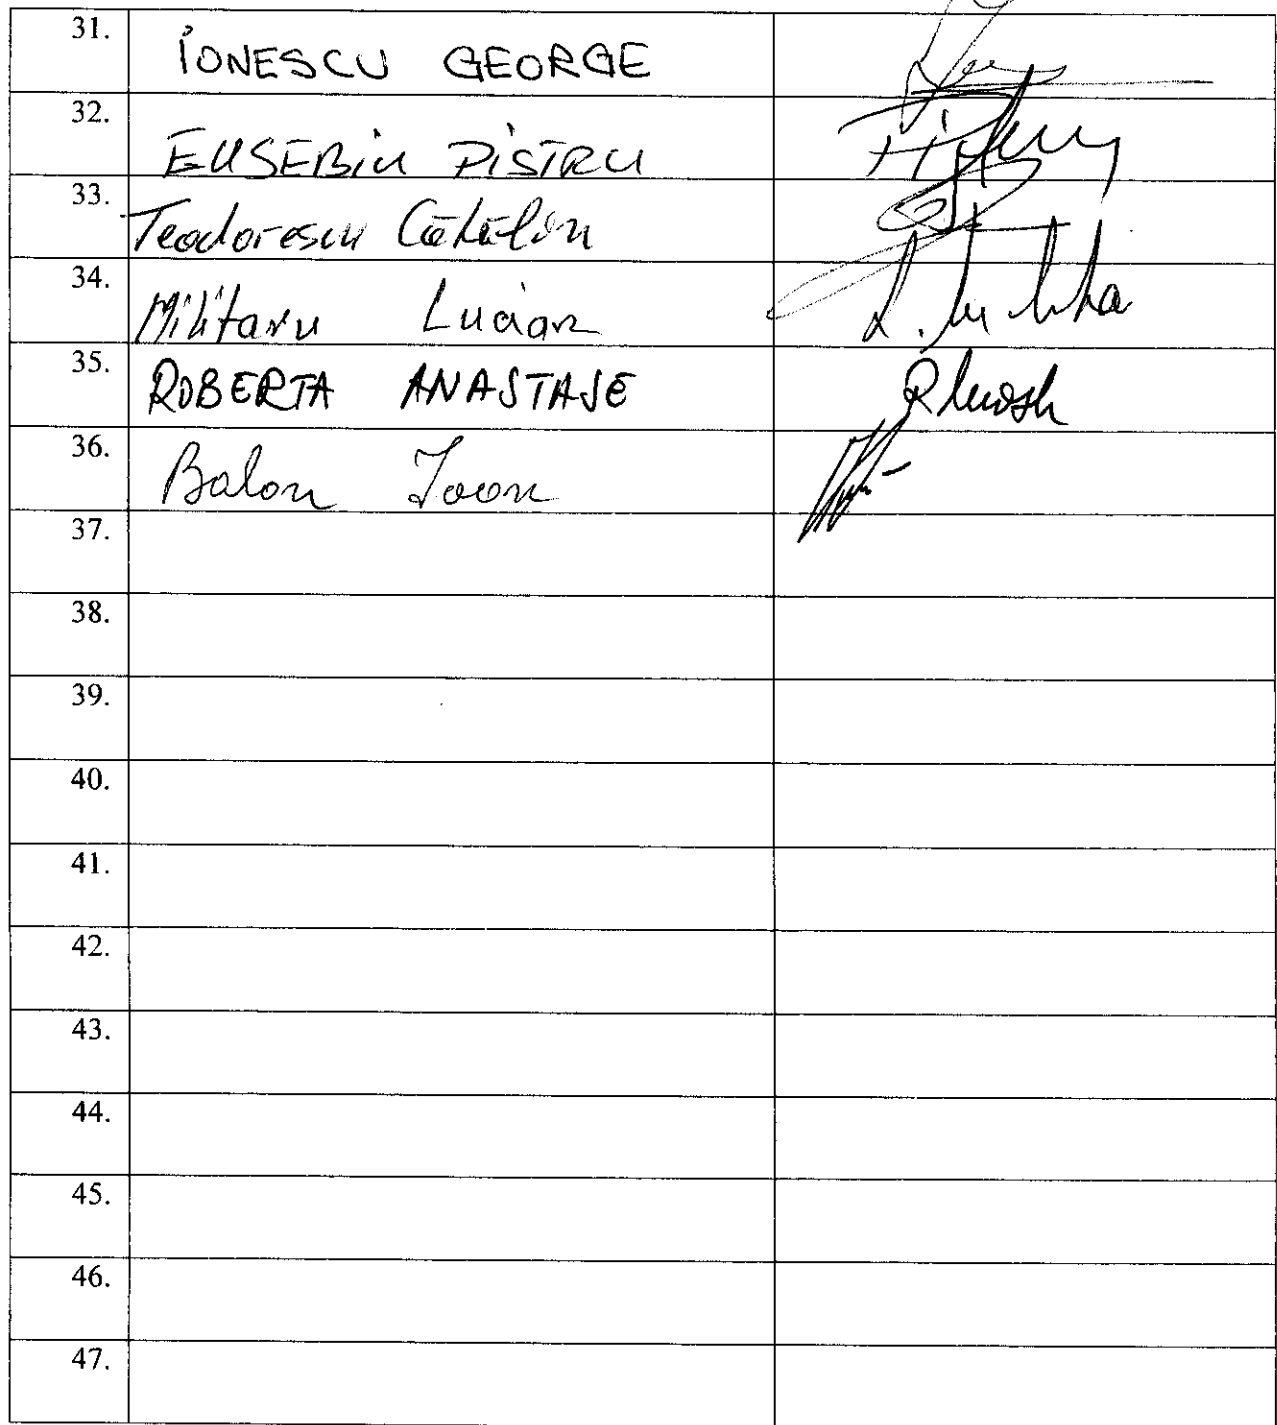 31. IONESCU GEORGE
32. EUSEBIU PISTRU
33. Teodorescu Cătălin
34. Militaru Lucian
35. ROBERTA ANASTASE
36. Balan Ioan
37.
38.
39.
40.
41.
42.
43.
44.
45.
46.
47.